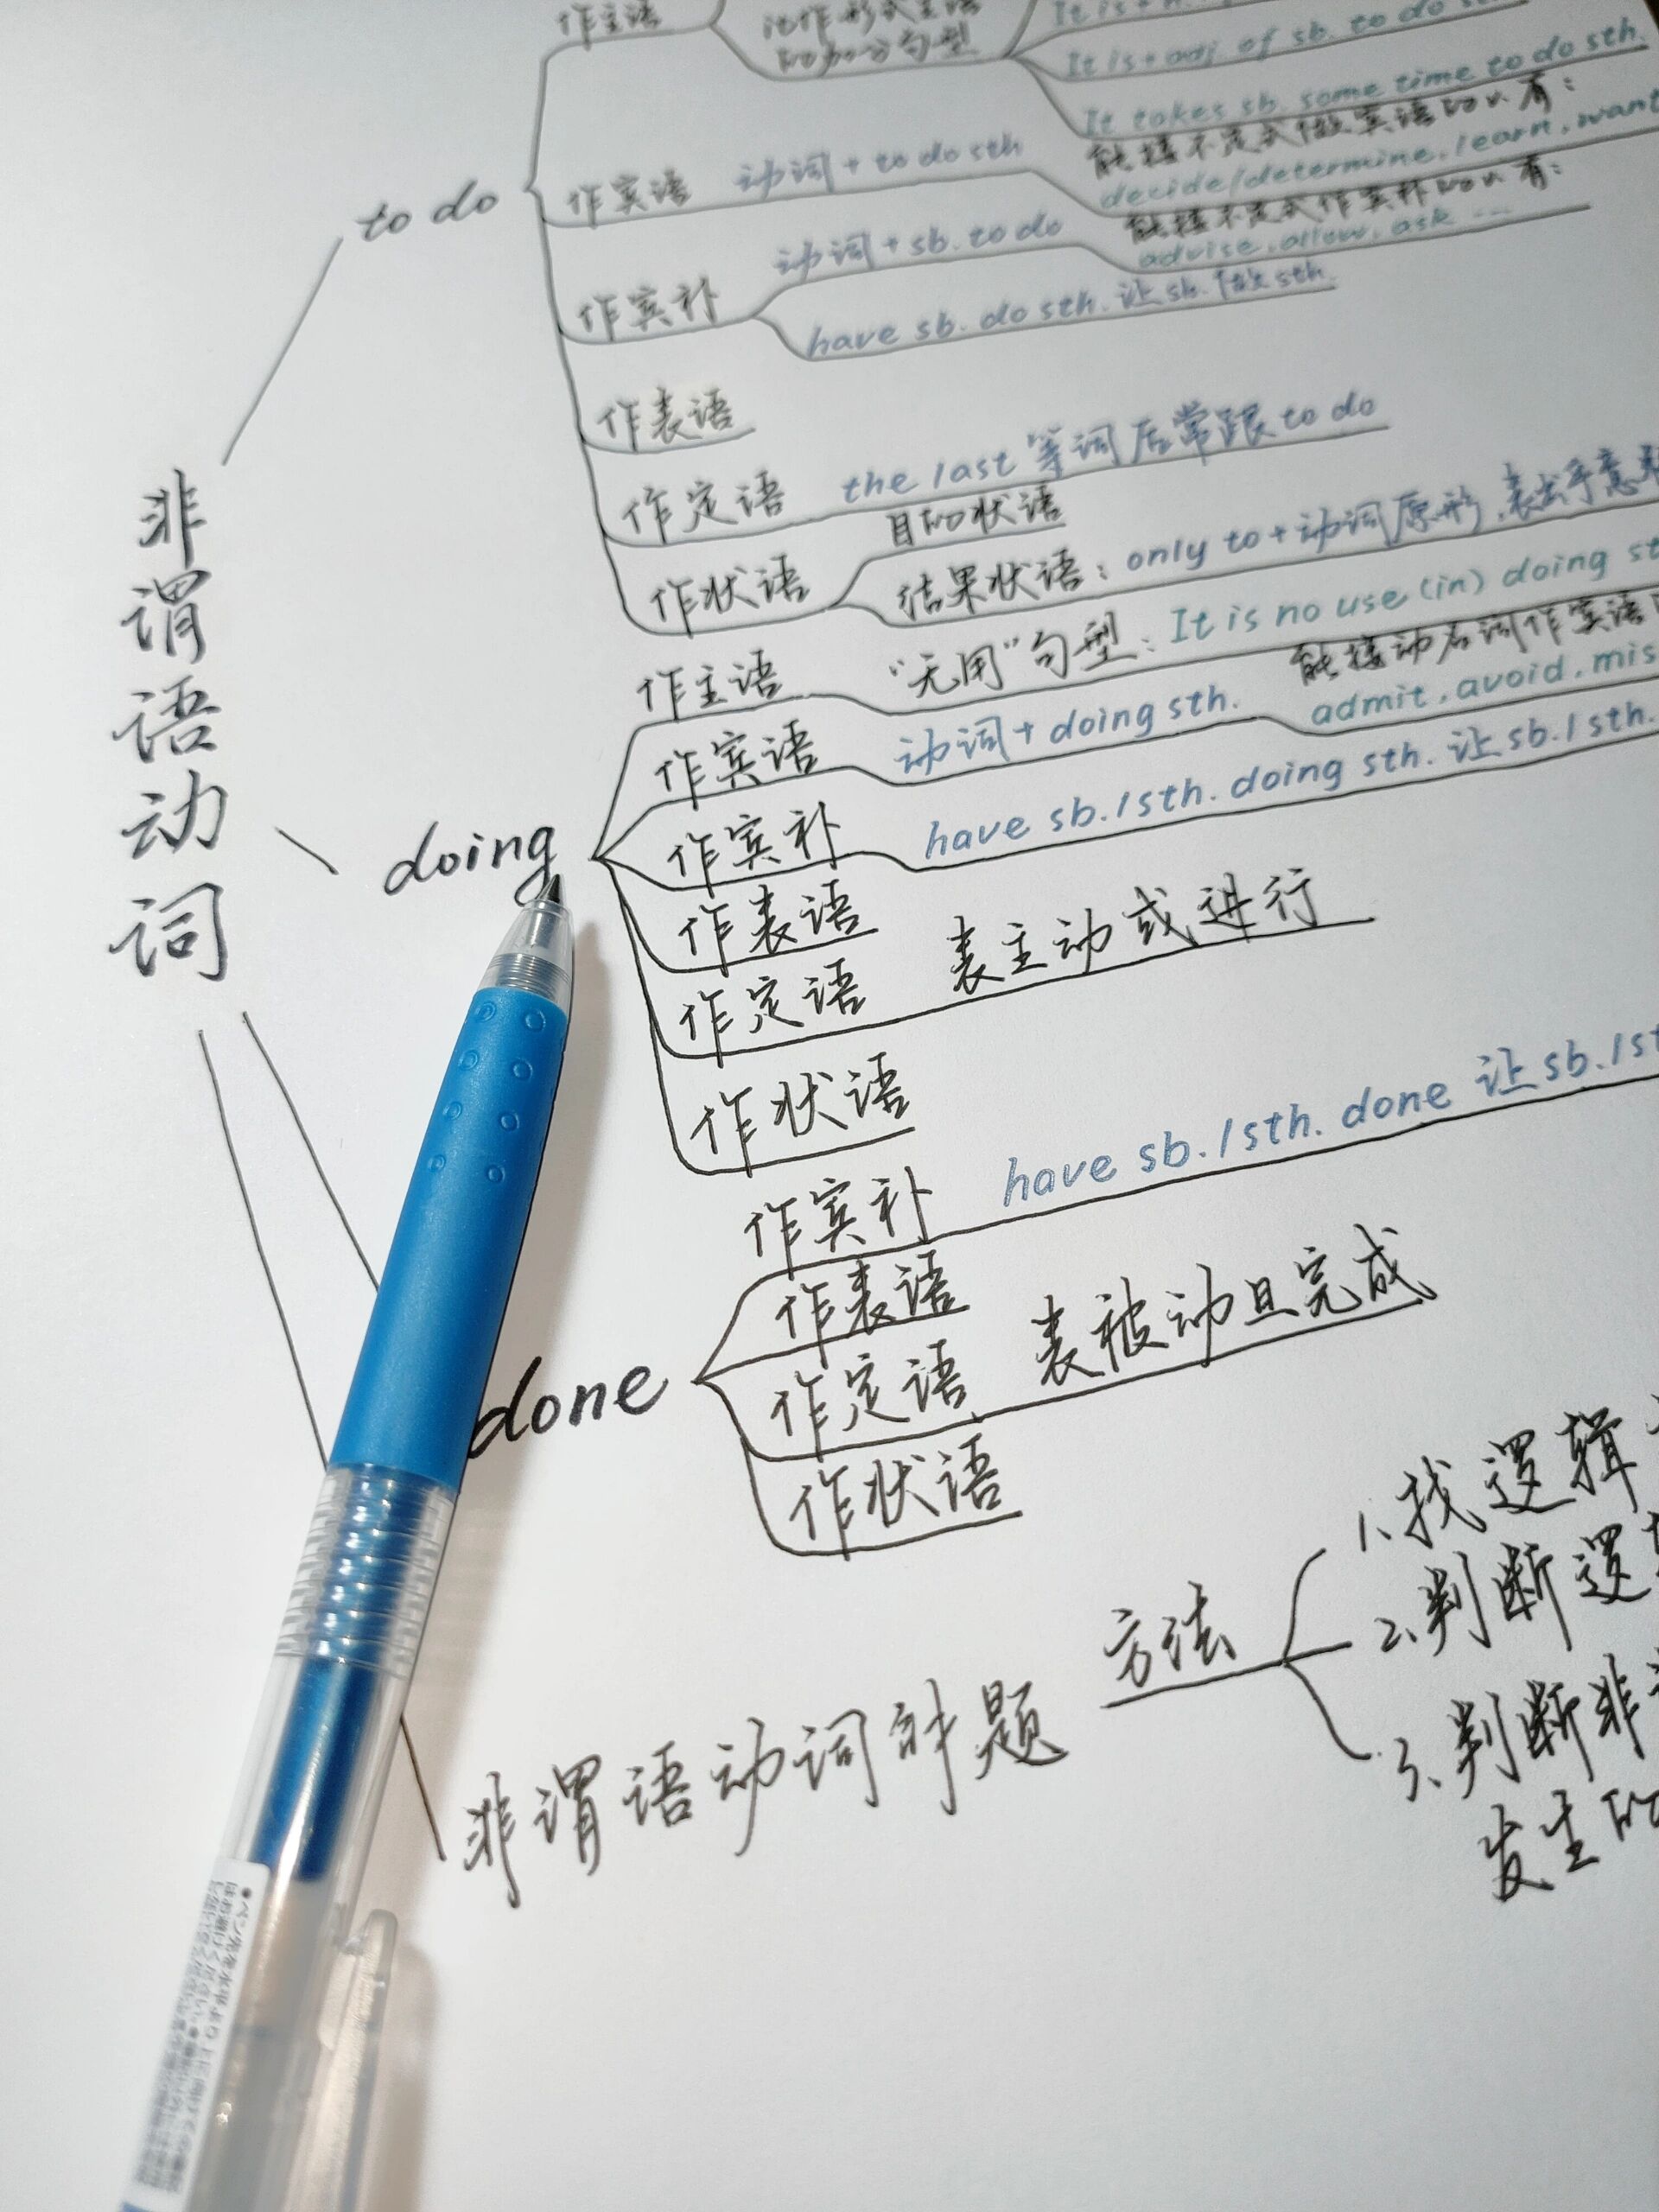 作主语
it作形式主语
的加分句型
It is + adj. of sb. to do
It takes sb. some time to do sth.
to do
作宾语 动词 + to do sth
能接不定式做宾语的v.有：
decide/determine, learn, want
作宾补
动词 + sb. to do
能接不定式作宾补的v.有：
advise, allow, ask ...
have sb. do sth. 让sb.做sth.
作表语
作定语 the last 等词后常跟to do
作状语
目的状语
结果状语：only to + 动词原形，表出乎意
非谓语动词
doing
作主语 “无用”句型：It is no use (in) doing
作宾语 动词 + doing sth.
能接动名词作宾语
admit, avoid, mis
作宾补 have sb./sth. doing sth. 让sb./sth.
作表语
作定语 表主动或进行
作状语
done
作宾补 have sb./sth. done 让sb./st
作表语
作定语 表被动且完成
作状语
非谓语动词 题
方法
1、找逻辑
2、判断逻
3、判断非
发生的